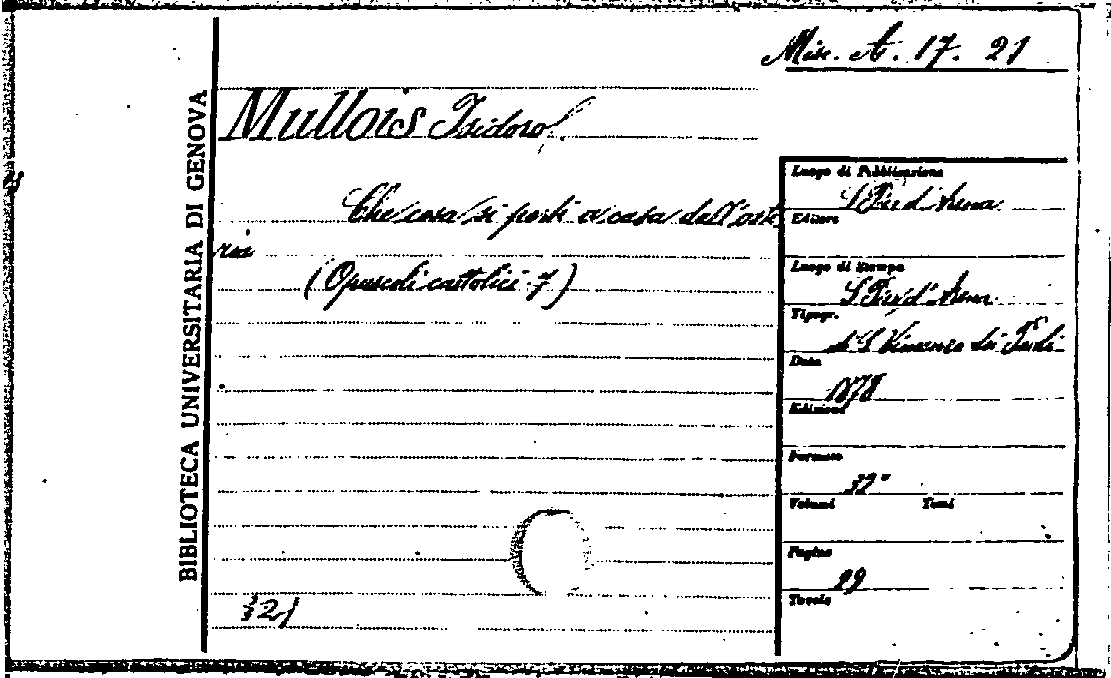 Misc. A. 17. 21
BIBLIOTECA UNIVERSITARIA DI GENOVA
Mullois Isidoro
Che cosa si porti a casa dall'oste
ria
(Opuscoli cattolici 7)
Luogo di Pubblicazione
S. Pier d'Arena
Editore
Luogo di Stampa
S. Pier d'Arena
Tipogr.
di S. Vincenzo de' Paoli
Data
1878
Edizione
Formato
32°
Volumi Tomi
Pagine
29
Tavole